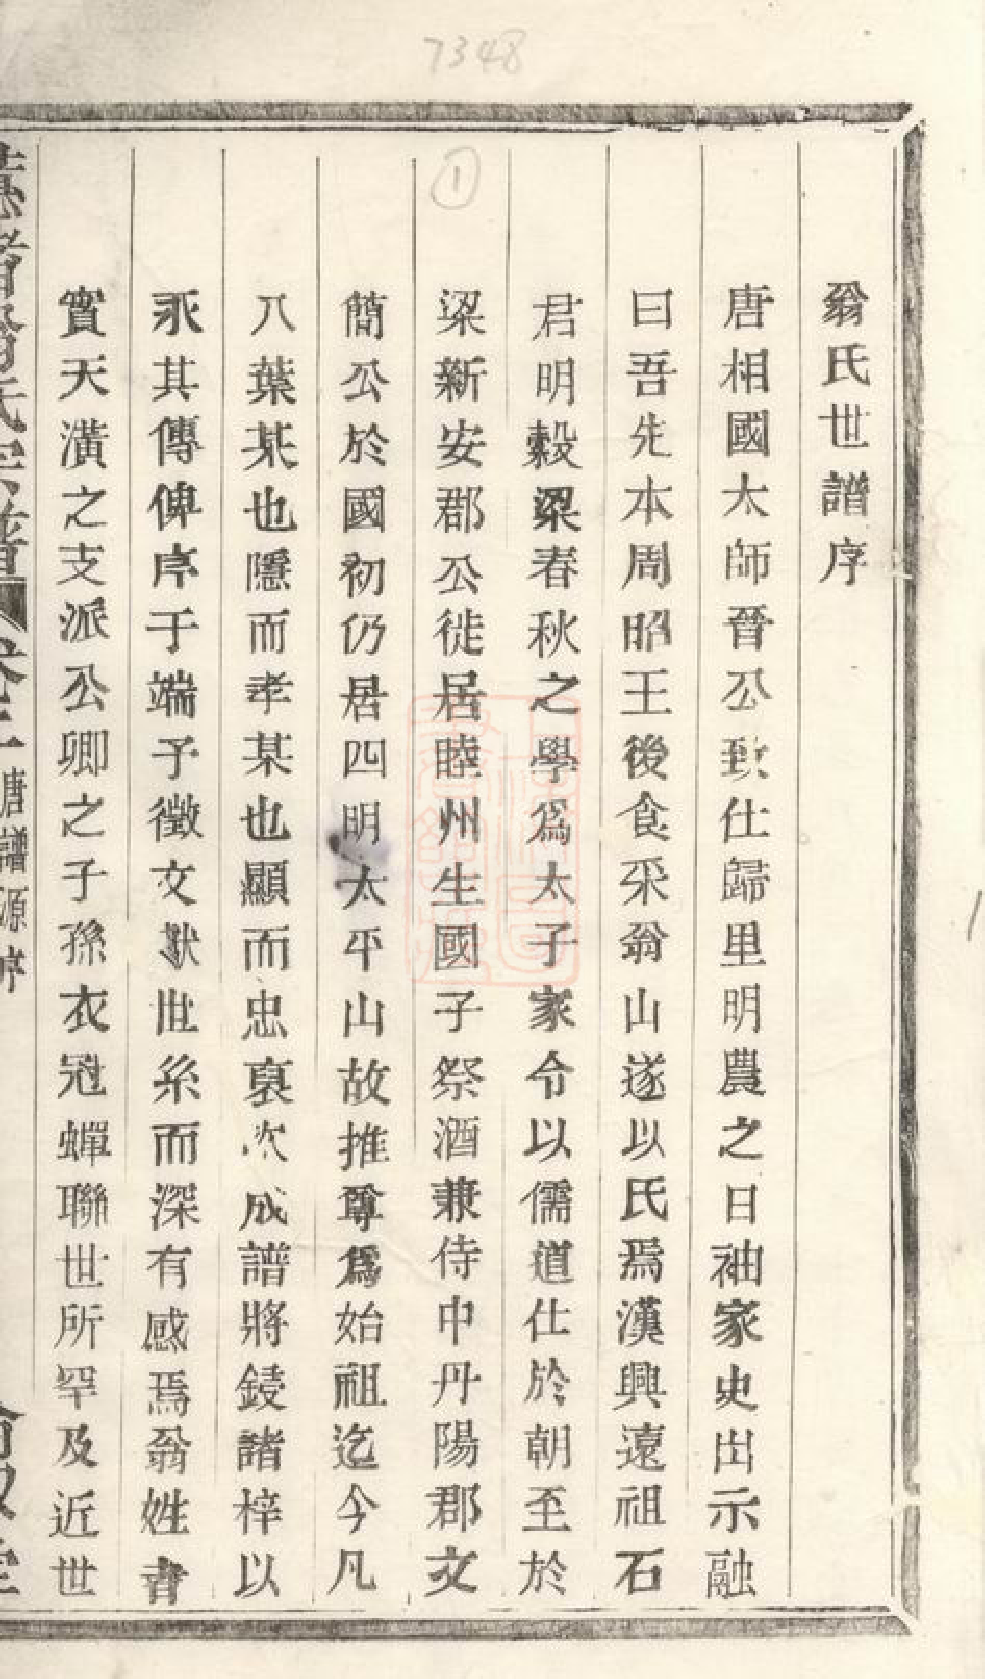 7348
1
翁氏世譜序
唐相國太師晉公致仕歸里明農之日袖家史出示融
曰吾先本周昭王後食采翁山遂以氏焉漢興遠祖石
君明糓梁春秋之學爲太子家令以儒道仕於朝至於
梁新安郡公徙居睦州生國子祭酒兼侍中丹陽郡文
簡公於國初仍居四明太平山故推尊爲始祖迄今凡
八葉某也隱而孝某也顯而忠裒次成譜將鋟諸梓以
永其傳俾序于端予徵文獻世系而深有感焉翁姓書
實天潢之支派公卿之子孫衣冠蟬聯世所罕及近世
唐譜源序